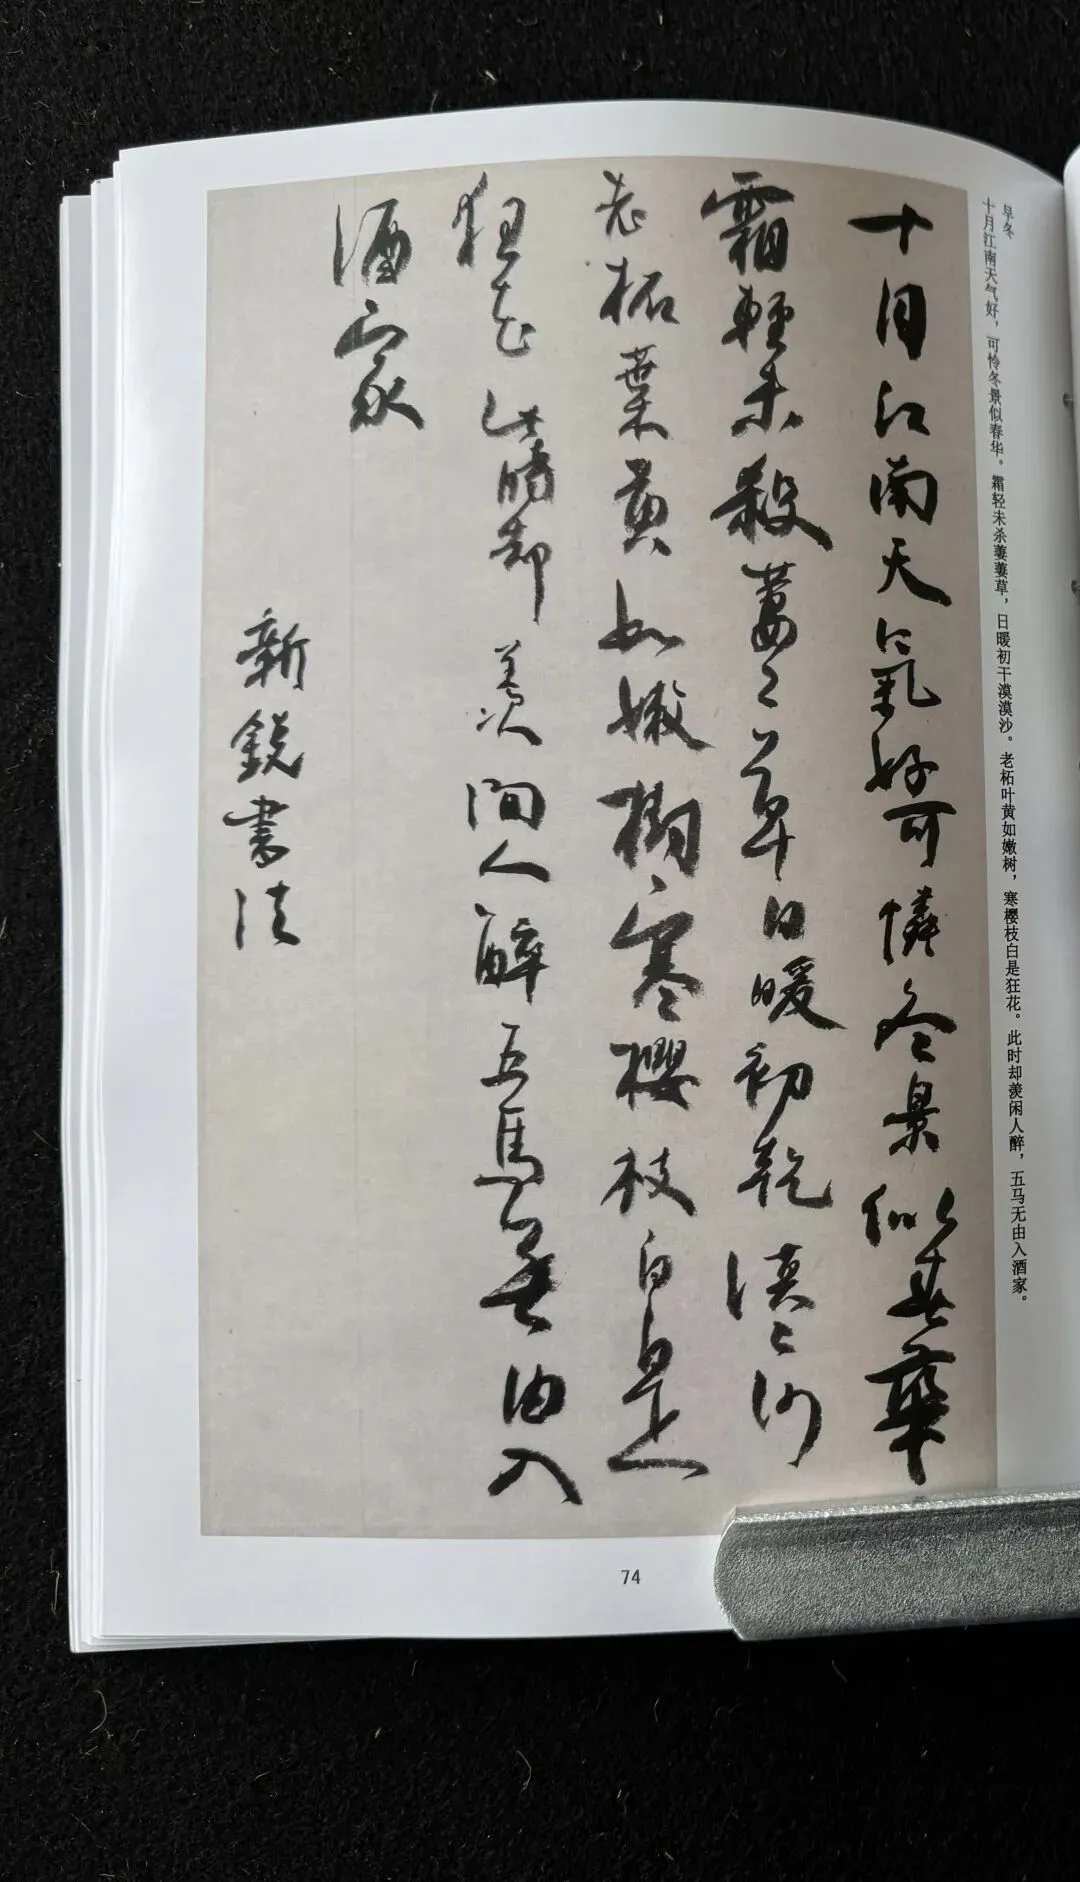 早冬
十月江南天气好，可怜冬景似春华。霜轻未杀萋萋草，日暖初干漠漠沙。老柘叶黄如嫩树，寒樱枝白是狂花。此时却羡闲人醉，五马无由入酒家。
十月江南天氣好可憐冬景似春華
霜輕未殺萋々草日暖初乾漠々沙
老柘葉黃如嫩樹寒櫻枝白是
狂花此時却羨閒人醉五馬無由入
酒家
新銳書法
74